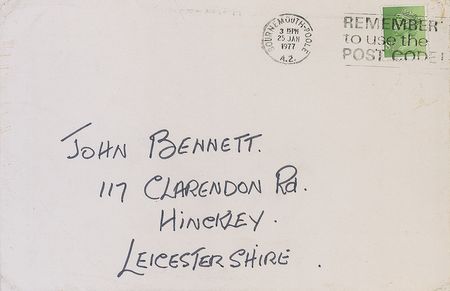 BOURNEMOUTH-POOLE
3 15PM
25 JAN
1977
A.2.
REMEMBER
to use the
POST CODE!
JOHN BENNETT.
117 CLARENDON Rd.
HINCKLEY.
LEICESTERSHIRE.